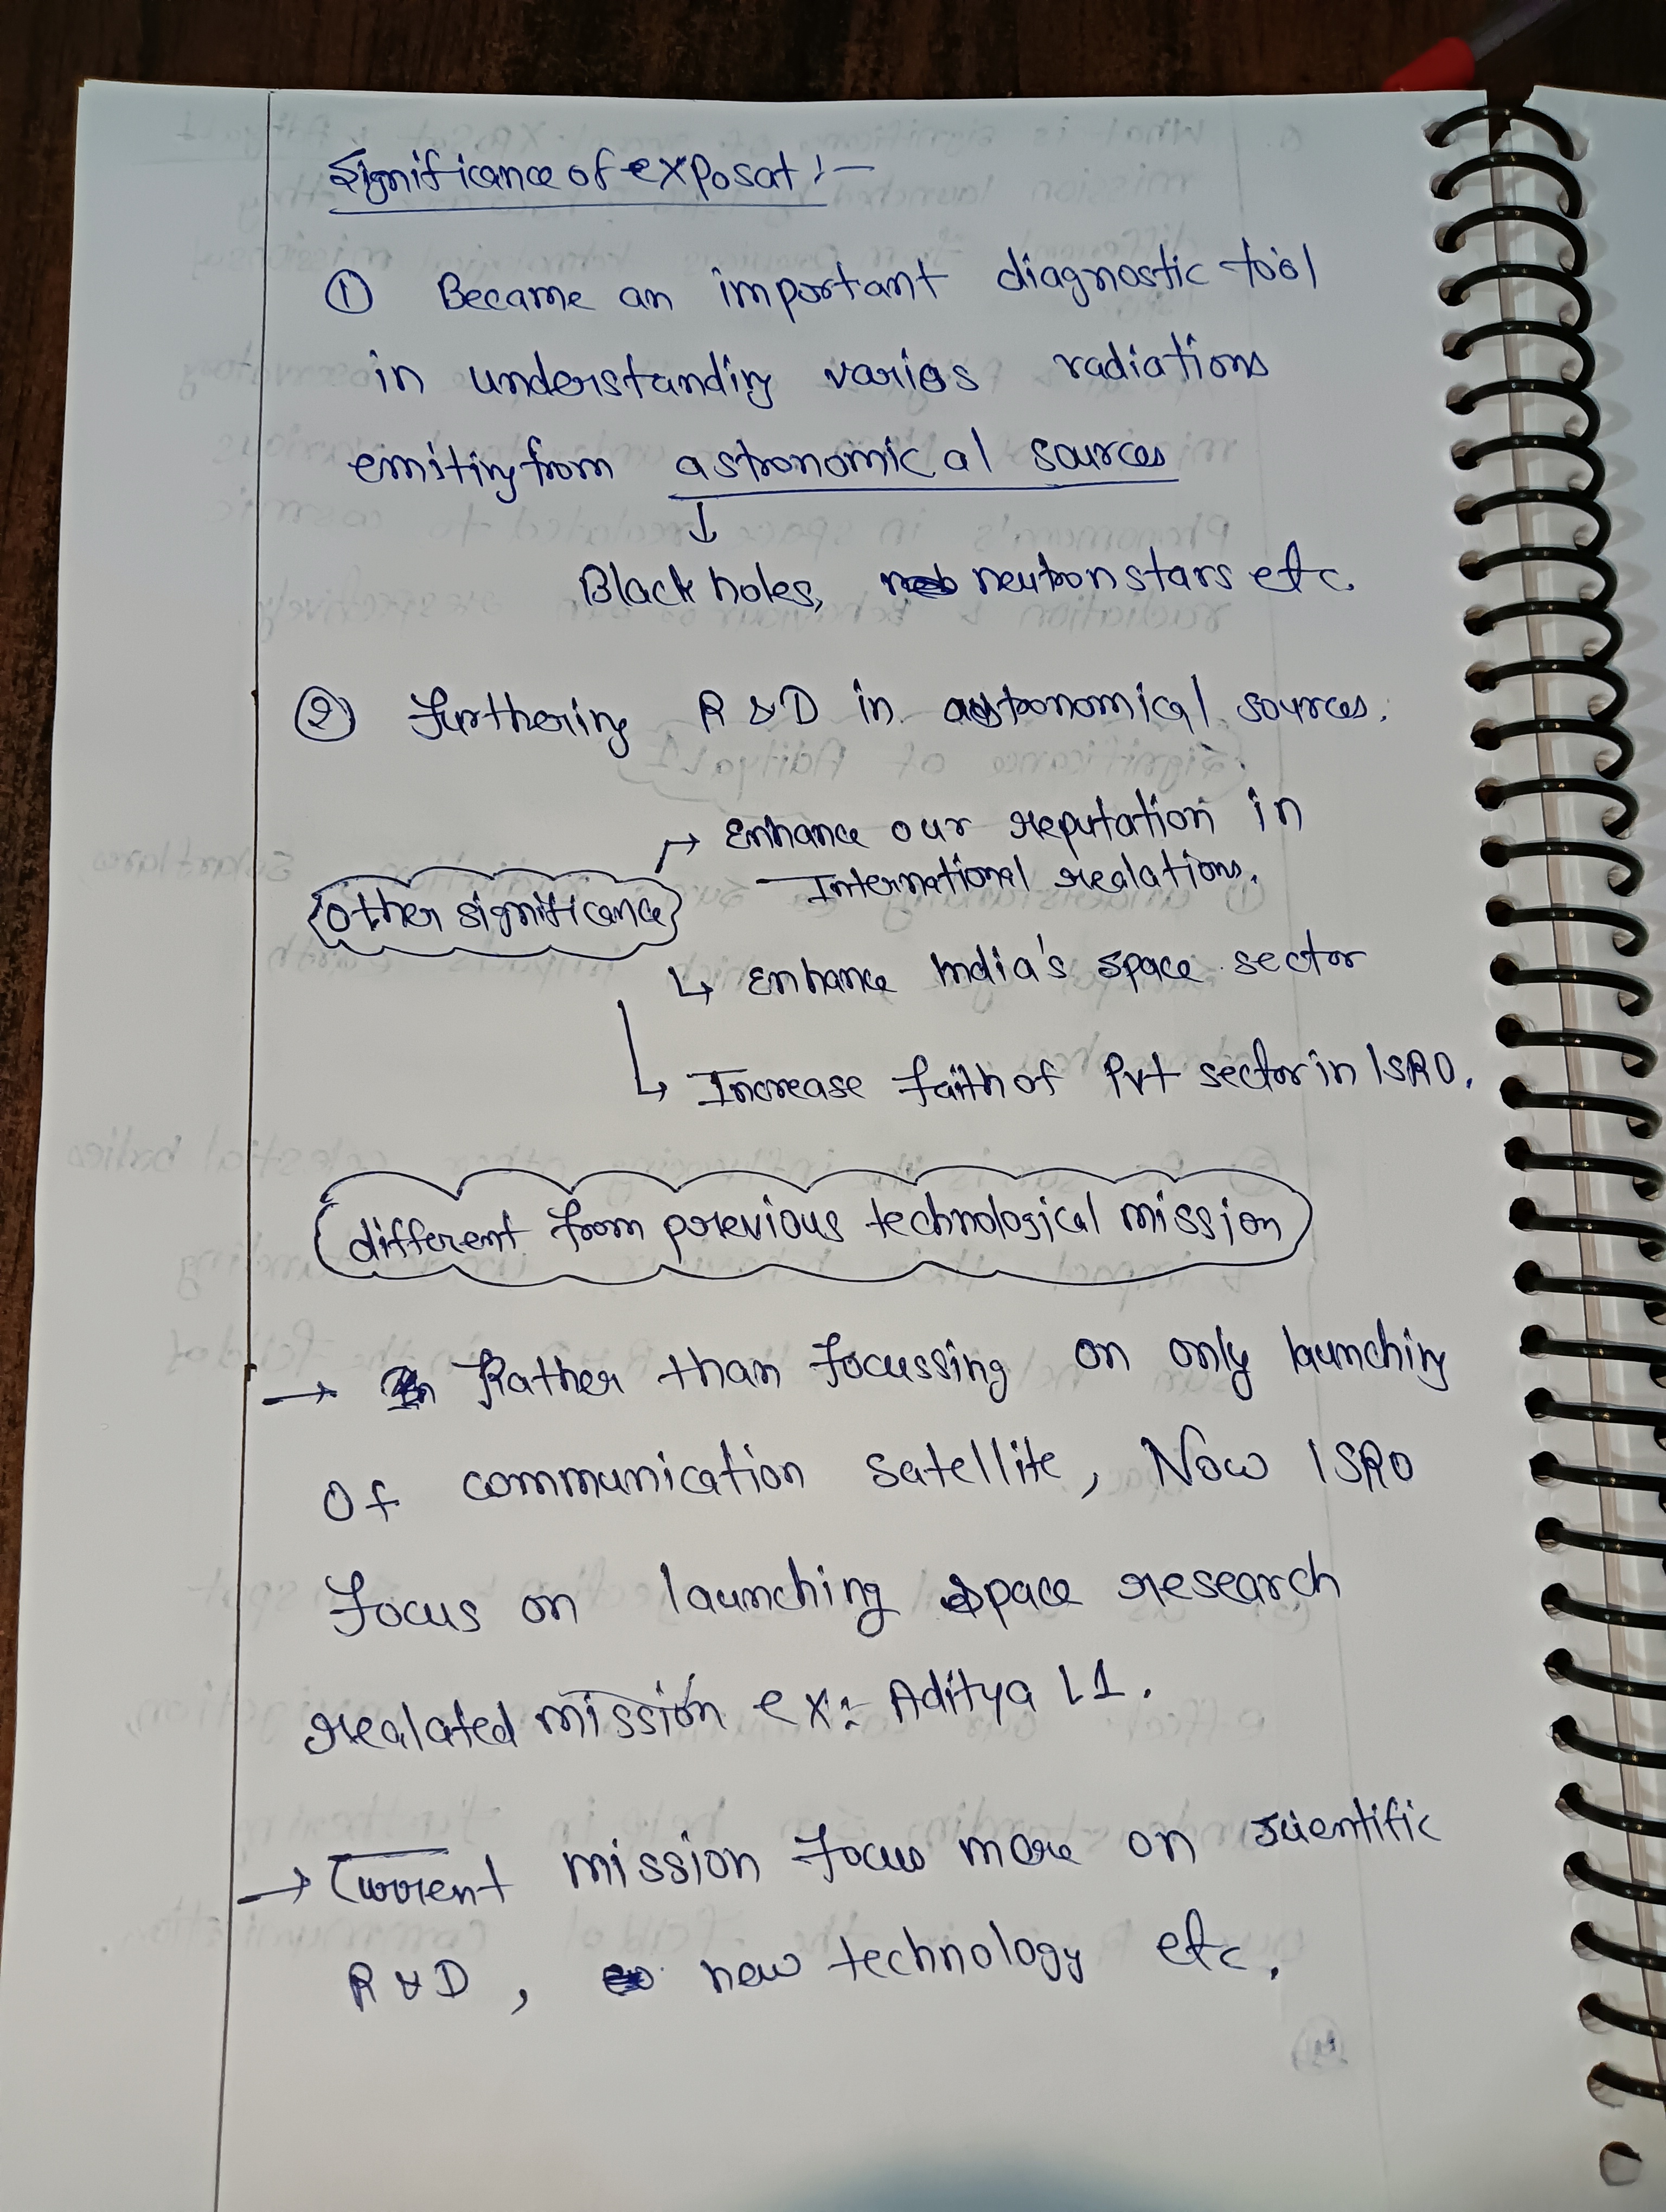 Significance of exposat :-
① Became an important diagnostic tool
in understanding varios radiations
emiting from astronomical sources
↓
Black holes, neutron stars etc.
② furthering R & D in astronomical sources.
→ Enhance our reputation in
International realations.
other significance
↳ Enhance India's space sector
↳ Increase faith of Pvt sector in ISRO.
different from previous technological mission
→ Rather than focussing on only launching
of communication satellite, Now ISRO
focus on launching space research
realated mission ex:- Aditya L1.
→ Current mission focus more on scientific
R & D, new technology etc.